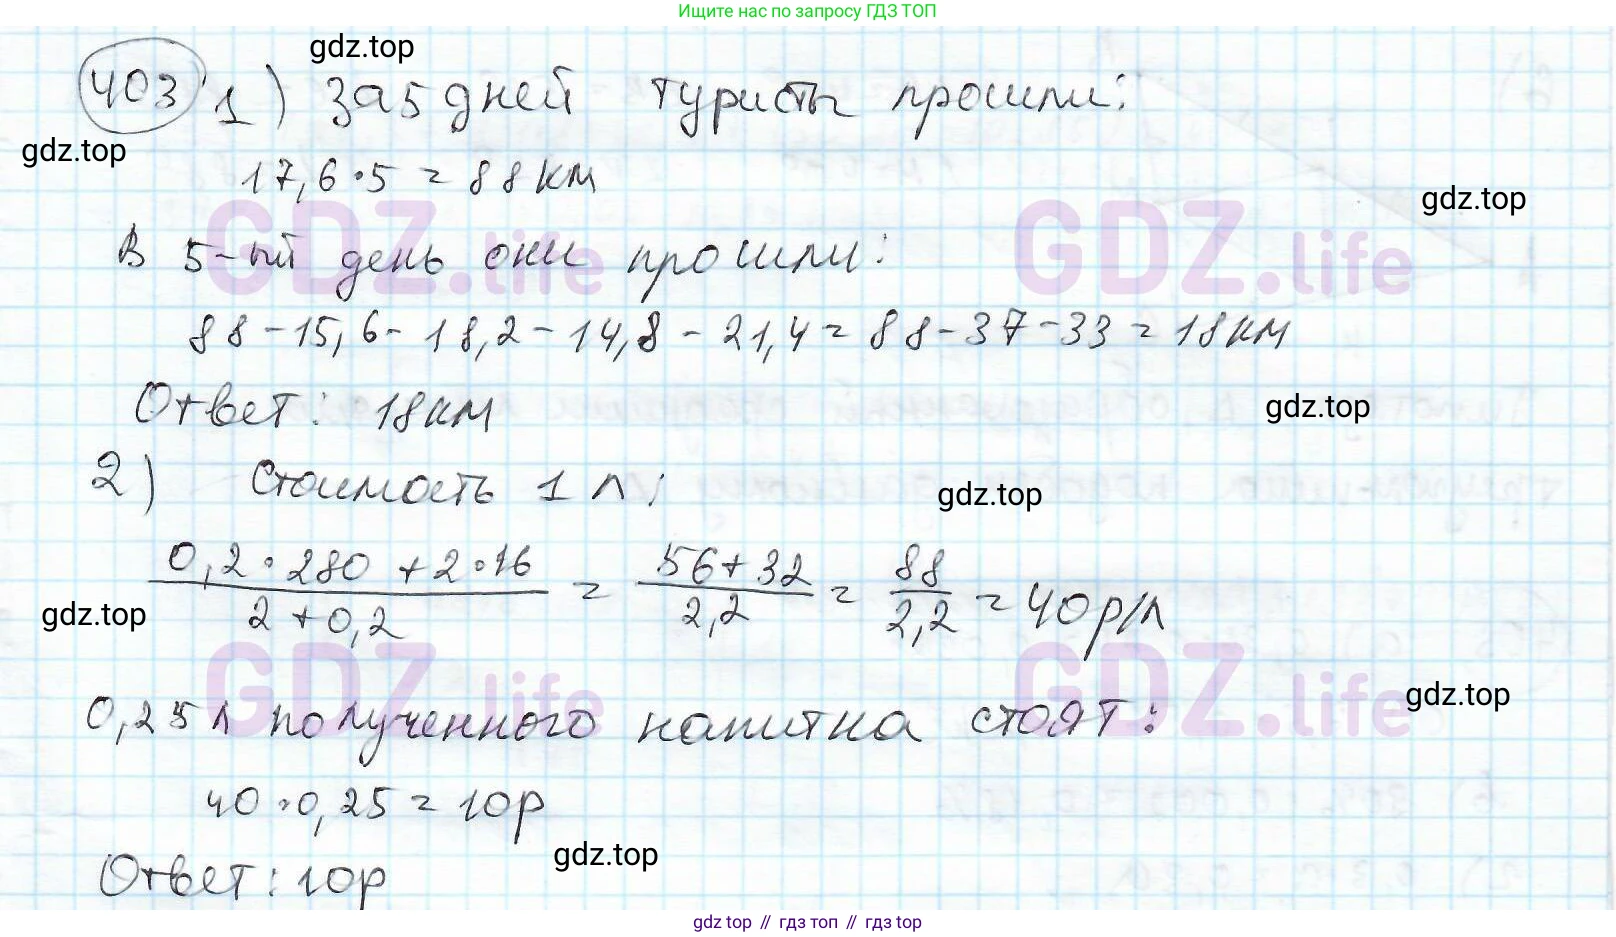 Ищите нас по запросу ГДЗ ТОП
gdz.top
403 1) За 5 дней туристы прошли:
gdz.top
17,6·5 = 88 км
gdz.top
GDZ.life GDZ.life
В 5-ый день они прошли:
88 - 15,6 - 18,2 - 14,8 - 21,4 = 88 - 37 - 33 = 18 км
Ответ: 18 км
gdz.top
2) Стоимость 1 л:
gdz.top
(0,2·280 + 2·16)/(2 + 0,2) = (56 + 32)/2,2 = 88/2,2 = 40 р/л
gdz.top
GDZ.life GDZ.life
gdz.top
0,25 л полученного напитка стоят:
40·0,25 = 10 р
gdz.top
Ответ: 10 р
gdz top // гдз топ // гдз top